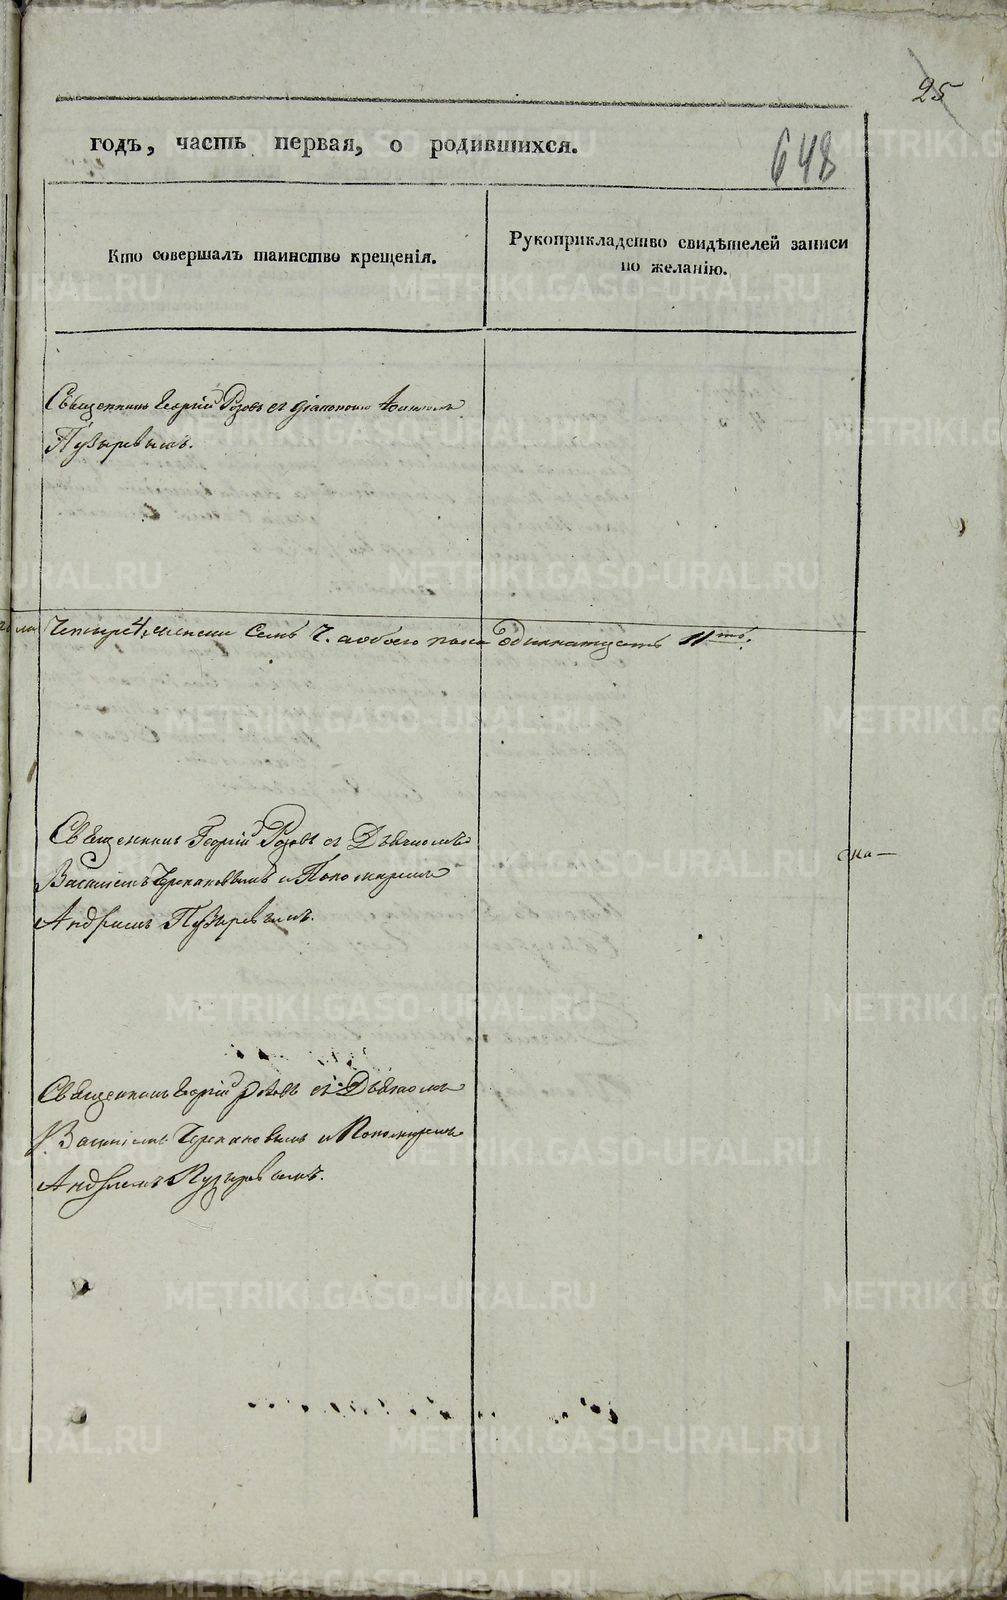 25
648
годъ, часть первая, о родившихся.
Кто совершалъ таинство крещенія.
Рукоприкладство свидѣтелей записи
по желанію.
Священникъ Георгій Розовъ съ діакономъ
Пузыревымъ.
Четыре 4, женска Семь 7. а обоего пола Одиннатцать 11ть.
Священникъ Георгій Розовъ съ Дьячкомъ
Василіемъ Черкановымъ и Пономаремъ
Андреемъ Пузыревымъ.
ска—
Священникъ Георгій Розовъ съ Дьячкомъ
Василіемъ Черкановымъ и Пономаремъ
Андреемъ Пузыревымъ.
METRIKI.GASO-URAL.RU